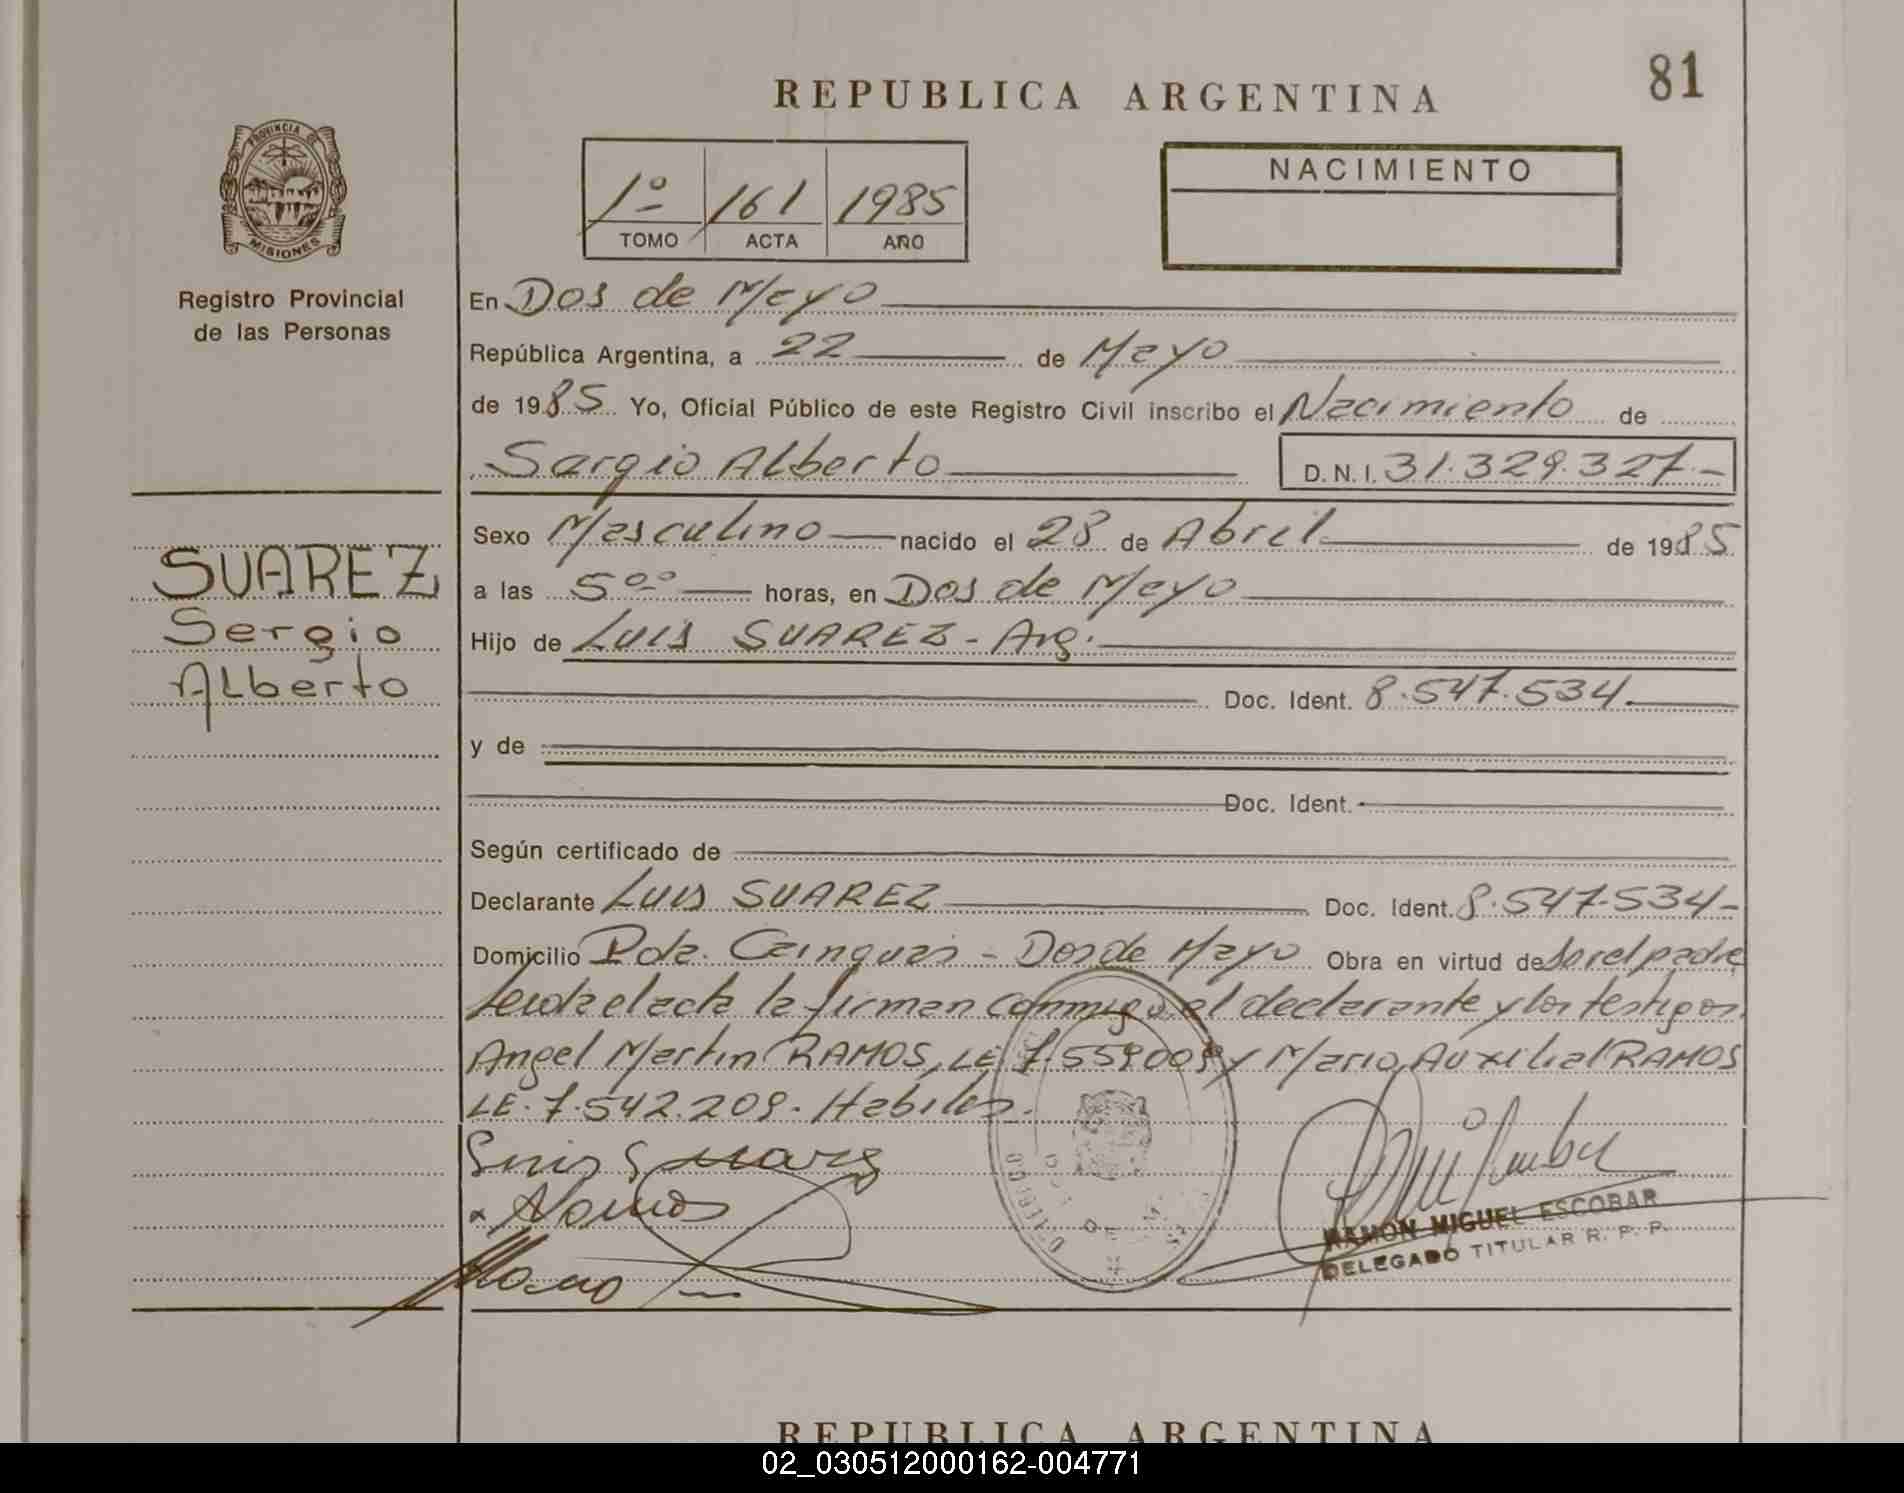 81
REPUBLICA ARGENTINA
PROVINCIA DE
MISIONES
Registro Provincial
de las Personas
1º 161 1985
TOMO ACTA AÑO
NACIMIENTO
En Dos de Mayo
República Argentina, a 22 de Mayo
de 1985 Yo, Oficial Público de este Registro Civil inscribo el Nacimiento de
Sergio Alberto D.N.I. 31.329.327.-
SUAREZ
Sergio
Alberto
Sexo Masculino nacido el 28 de Abril de 1985
a las 5oo horas, en Dos de Mayo
Hijo de Luis SUAREZ - Arg.
Doc. Ident. 8.547.534
y de
Doc. Ident.
Según certificado de
Declarante Luis SUAREZ Doc. Ident. 8.547.534-
Domicilio Pda. Cainguas - Dos de Mayo Obra en virtud de ser el padre
Leida el acta la firman conmigo el declarante y los testigos
Angel Martin RAMOS, LE 7.559009 y Mario Auxilial RAMOS
LE. 7.542.209. Habiles.
Luis Suarez
Ramos
RAMON MIGUEL ESCOBAR
DELEGADO TITULAR R. P. P.
REPUBLICA ARGENTINA
02_030512000162-004771